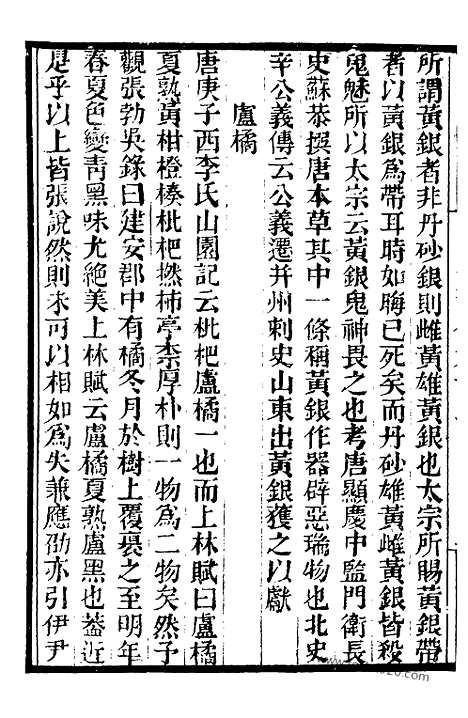 所謂黃銀者非丹砂銀則雌黃雄黃銀也太宗所賜黃銀帶
者以黃銀爲帶耳時如晦已死矣而丹砂雄黃雌黃銀皆殺
鬼魅所以太宗云黃銀鬼神畏之也考唐顯慶中監門衛長
史蘇恭撰唐本草其中一條稱黃銀作器辟惡瑞物也北史
辛公義傳云公義遷并州刺史山東出黃銀獲之以獻
盧橘
唐庚子西李氏山園記云枇杷盧橘一也而上林賦曰盧橘
夏孰黃柑橙楱枇杷橪柿亭柰厚朴則一物爲二物矣然予
觀張勃吳錄曰建安郡中有橘冬月於樹上覆裹之至明年
春夏色變靑黑味尤絕美上林賦云盧橘夏熟盧黑也蓋近
是乎以上皆張說然則未可以相如爲失兼應劭亦引伊尹